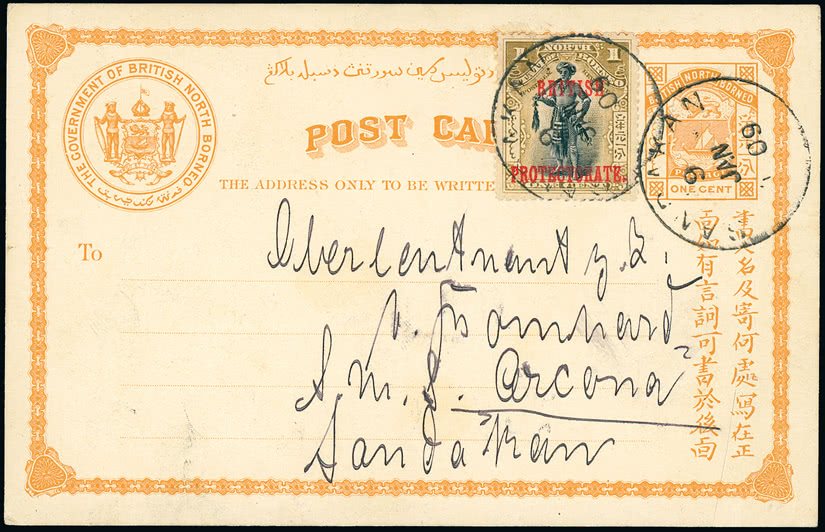 THE GOVERNMENT OF BRITISH NORTH BORNEO
POST CA
THE ADDRESS ONLY TO BE WRITTE
1 NORTH BORNEO 1
BRITISH
PROTECTORATE.
BRITISH NORTH BORNEO
ONE CENT
SANDAKAN
JAN
6
09
To
Oberleutnant z. S.
v. Bomhard
S. M. S. Arcona
Sandakan
書人名及寄何處寫在正
面如有言詞可書於後面